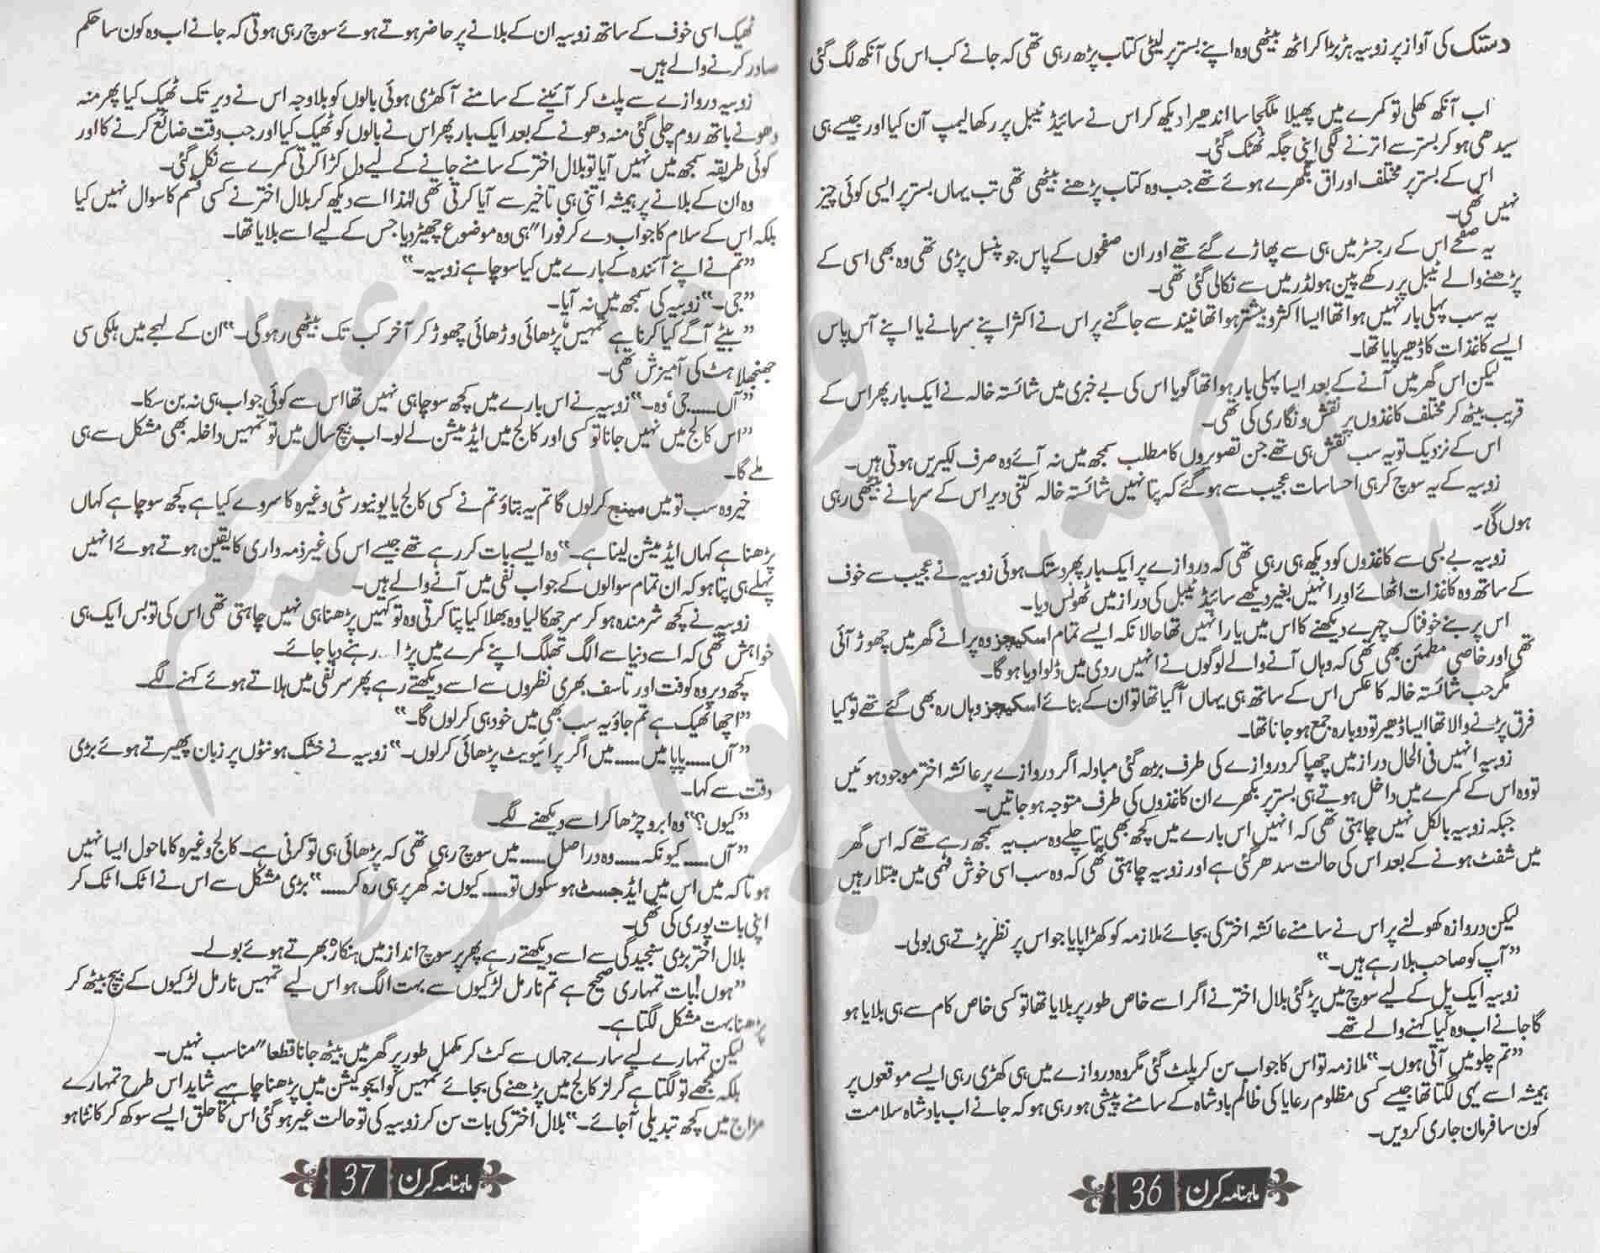 دستک کی آواز پر زوبیہ ہڑبڑا کر اٹھ بیٹھی وہ اپنے بستر پر لیٹی کتاب پڑھ رہی تھی کہ جانے کب اس کی آنکھ لگ گئی
اب آنکھ کھلی تو کمرے میں پھیلا ملگجا سا اندھیرا دیکھ کر اس نے سائیڈ ٹیبل پر رکھا لیمپ آن کیا اور جیسے ہی
سیدھی ہو کر بستر سے اترنے لگی اپنی جگہ ٹھٹک گئی۔
اس کے بستر پر مختلف اوراق بکھرے ہوئے تھے جب وہ کتاب پڑھنے بیٹھی تھی تب یہاں بستر پر ایسی کوئی چیز
نہیں تھی۔
یہ صفحے اس کے رجسٹر میں ہی سے پھاڑے گئے تھے اور ان صفحوں کے پاس جو پنسل پڑی تھی وہ بھی اسی کے
پڑھنے والے ٹیبل پر رکھے پین ہولڈر میں سے نکالی گئی تھی۔
یہ سب پہلی بار نہیں ہوا تھا ایسا اکثر و بیشتر ہوا تھا نیند سے جاگنے پر اس نے اکثر اپنے سرہانے یا اپنے آس پاس
ایسے کاغذات کا ڈھیر پایا تھا۔
لیکن اس گھر میں آنے کے بعد ایسا پہلی بار ہوا تھا گویا اس کی بے خبری میں شائستہ خالہ نے ایک بار پھر اس کے
قریب بیٹھ کر مختلف کاغذوں پر نقش و نگاری کی تھی۔
اس کے نزدیک تو یہ سب نقش ہی تھے جن تصویروں کا مطلب سمجھ میں نہ آئے وہ صرف لکیریں ہوتی ہیں۔
زوبیہ کے یہ سوچ کر ہی احساسات عجیب سے ہو گئے کہ پتا نہیں شائستہ خالہ کتنی دیر اس کے سرہانے بیٹھی رہی
ہوں گی۔
زوبیہ بے بسی سے کاغذوں کو دیکھ ہی رہی تھی کہ دروازے پر ایک بار پھر دستک ہوئی زوبیہ نے عجیب سے خوف
کے ساتھ وہ کاغذات اٹھائے اور انہیں بغیر دیکھے سائیڈ ٹیبل کی دراز میں ٹھونس دیا۔
اس پر بنے خوفناک چہرے دیکھنے کا اس میں یارا نہیں تھا حالانکہ ایسے تمام اسکیچز وہ پرانے گھر میں چھوڑ آئی
تھی اور خاصی مطمئن بھی تھی کہ وہاں آنے والے لوگوں نے انہیں ردی میں ڈلوا دیا ہو گا۔
مگر جب شائستہ خالہ کا عکس اس کے ساتھ ہی یہاں آ گیا تھا تو ان کے بنائے اسکیچز وہاں رہ بھی گئے تھے تو کیا
فرق پڑنے والا تھا ایسا ڈھیر تو دوبارہ جمع ہو جانا تھا۔
زوبیہ انہیں فی الحال دراز میں چھپا کر دروازے کی طرف بڑھ گئی مبادلہ اگر دروازے پر عائشہ اختر موجود ہوئیں
تو وہ اس کے کمرے میں داخل ہوتے ہی بستر پر بکھرے ان کاغذوں کی طرف متوجہ ہو جاتیں۔
جبکہ زوبیہ بالکل نہیں چاہتی تھی کہ انہیں اس بارے میں کچھ بھی پتا چلے وہ سب یہ سمجھ رہے تھے کہ اس گھر
میں شفٹ ہونے کے بعد اس کی حالت سدھر گئی ہے اور زوبیہ چاہتی تھی کہ وہ سب اسی خوش فہمی میں مبتلا رہیں
لیکن دروازہ کھولنے پر اس نے سامنے عائشہ اختر کی بجائے ملازمہ کو کھڑا پایا جو اس پر نظر پڑتے ہی بولی۔
”آپ کو صاحب بلا رہے ہیں۔“
زوبیہ ایک پل کے لیے سوچ میں پڑ گئی بلال اختر نے اگر اسے خاص طور پر بلایا تھا تو کسی خاص کام سے ہی بلایا ہو
گا جانے اب وہ کیا کہنے والے تھے۔
”تم چلو میں آتی ہوں۔“ ملازمہ تو اس کا جواب سن کر پلٹ گئی مگر وہ دروازے میں ہی کھڑی رہی ایسے موقعوں پر
ہمیشہ اسے یہی لگتا تھا جیسے کسی مظلوم رعایا کی ظالم بادشاہ کے سامنے پیشی ہو رہی ہو کہ جانے اب بادشاہ سلامت
کون سا فرمان جاری کر دیں۔
ماہنامہ کرن 36
ٹھیک اسی خوف کے ساتھ زوبیہ ان کے بلانے پر حاضر ہوتے ہوئے سوچ رہی ہوتی کہ جانے اب وہ کون سا حکم
صادر کرنے والے ہیں۔
زوبیہ دروازے سے پلٹ کر آئینے کے سامنے آ کھڑی ہوئی بالوں کو بلاوجہ اس نے دیر تک ٹھیک کیا پھر منہ
دھونے باتھ روم چلی گئی منہ دھونے کے بعد ایک بار پھر اس نے بالوں کو ٹھیک کیا اور جب وقت ضائع کرنے کا اور
کوئی طریقہ سمجھ میں نہیں آیا تو بلال اختر کے سامنے جانے کے لیے دل کڑا کرتی کمرے سے نکل گئی۔
وہ ان کے بلانے پر ہمیشہ اتنی ہی تاخیر سے آیا کرتی تھی لہٰذا اسے دیکھ کر بلال اختر نے کسی قسم کا سوال نہیں کیا
بلکہ اس کے سلام کا جواب دے کر فورا" ہی وہ موضوع چھیڑ دیا جس کے لیے اسے بلایا تھا۔
”تم نے اپنے آئندہ کے بارے میں کیا سوچا ہے زوبیہ۔“
”جی۔“ زوبیہ کی سمجھ میں نہ آیا۔
”بیٹے آگے کیا کرنا ہے تمہیں پڑھائی وڑھائی چھوڑ کر آخر کب تک بیٹھی رہو گی۔“ ان کے لہجے میں ہلکی سی
جھنجلاہٹ کی آمیزش تھی۔
”آں...... جی' وہ۔“ زوبیہ نے اس بارے میں کچھ سوچا ہی نہیں تھا اس سے کوئی جواب ہی نہ بن سکا۔
”اس کالج میں نہیں جانا تو کسی اور کالج میں ایڈمیشن لے لو۔ اب بیچ سال میں تو تمہیں داخلہ بھی مشکل سے ہی
ملے گا۔
خیر وہ سب تو میں مینیج کر لوں گا تم یہ بتاؤ تم نے کسی کالج یا یونیورسٹی وغیرہ کا سروے کیا ہے کچھ سوچا ہے کہاں
پڑھنا ہے کہاں ایڈمیشن لینا ہے۔“ وہ ایسے بات کر رہے تھے جیسے اس کی غیر ذمہ داری کا یقین ہوتے ہوئے انہیں
پہلے ہی پتا ہو کہ ان تمام سوالوں کے جواب نفی میں آنے والے ہیں۔
زوبیہ نے کچھ شرمندہ ہو کر سر جھکا لیا وہ بھلا کیا پتا کرتی وہ تو کہیں پڑھنا ہی نہیں چاہتی تھی اس کی تو بس ایک ہی
خواہش تھی کہ اسے دنیا سے الگ تھلگ اپنے کمرے میں پڑا رہنے دیا جائے۔
کچھ دیر وہ کوفت اور تاسف بھری نظروں سے اسے دیکھتے رہے پھر سر نفی میں ہلاتے ہوئے کہنے لگے۔
”اچھا ٹھیک ہے تم جاؤ یہ سب بھی میں خود ہی کر لوں گا۔“
”آں...... پاپا میں...... میں اگر پرائیویٹ پڑھائی کر لوں۔“ زوبیہ نے خشک ہونٹوں پر زبان پھیرتے ہوئے بڑی
دقت سے کہا۔
”کیوں؟“ وہ ابرو چڑھا کر اسے دیکھنے لگے۔
”آں...... کیونکہ...... وہ دراصل...... میں سوچ رہی تھی کہ پڑھائی ہی تو کرنی ہے۔ کالج وغیرہ کا ماحول ایسا نہیں
ہوتا کہ میں اس میں ایڈجسٹ ہو سکوں تو...... کیوں نہ گھر پر ہی رہ کر......“ بڑی مشکل سے اس نے اٹک اٹک کر
اپنی بات پوری کی تھی۔
بلال اختر بڑی سنجیدگی سے اسے دیکھتے رہے پھر پر سوچ انداز میں ہنکارا بھرتے ہوئے بولے۔
”ہوں! بات تمہاری صحیح ہے تم نارمل لڑکیوں سے بہت الگ ہو اس لیے تمہیں نارمل لڑکیوں کے بیچ بیٹھ کر
پڑھنا بہت مشکل لگتا ہے۔
لیکن تمہارے لیے سارے جہاں سے کٹ کر مکمل طور پر گھر میں بیٹھ جانا قطعا" مناسب نہیں۔
بلکہ مجھے تو لگتا ہے گرلز کالج میں پڑھنے کی بجائے تمہیں کو ایجوکیشن میں پڑھنا چاہیے شاید اس طرح تمہارے
مزاج میں کچھ تبدیلی آ جائے۔“ بلال اختر کی بات سن کر زوبیہ کی تو حالت غیر ہو گئی اس کا حلق ایسے سوکھ کر کانٹا ہو
ماہنامہ کرن 37